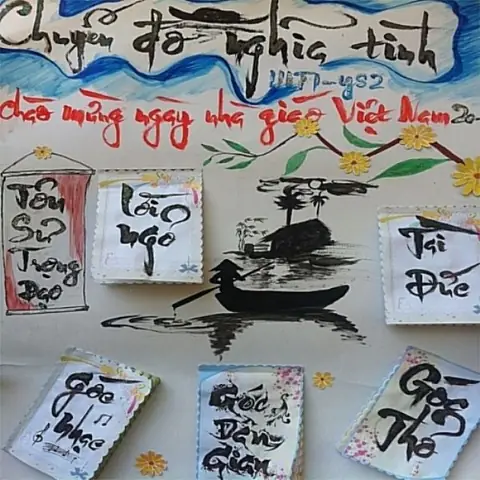 Chuyến đò nghĩa tình
chào mừng ngày nhà giáo Việt Nam 20-
Tôn
Sư
Trọng
Đạo
Lời
ngỏ
Tài
Đức
Góc
nhạc
Góc
Dân
Gian
Góc
Thơ